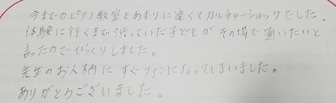 今までのピアノ教室とあまりに違くてカルチャーショックでした。
体験に行くまで渋っていた子どもがその場で通いたいと
言ったのでびっくりしました。
先生のお人柄にすぐファンになってしまいました。
ありがとうございました。